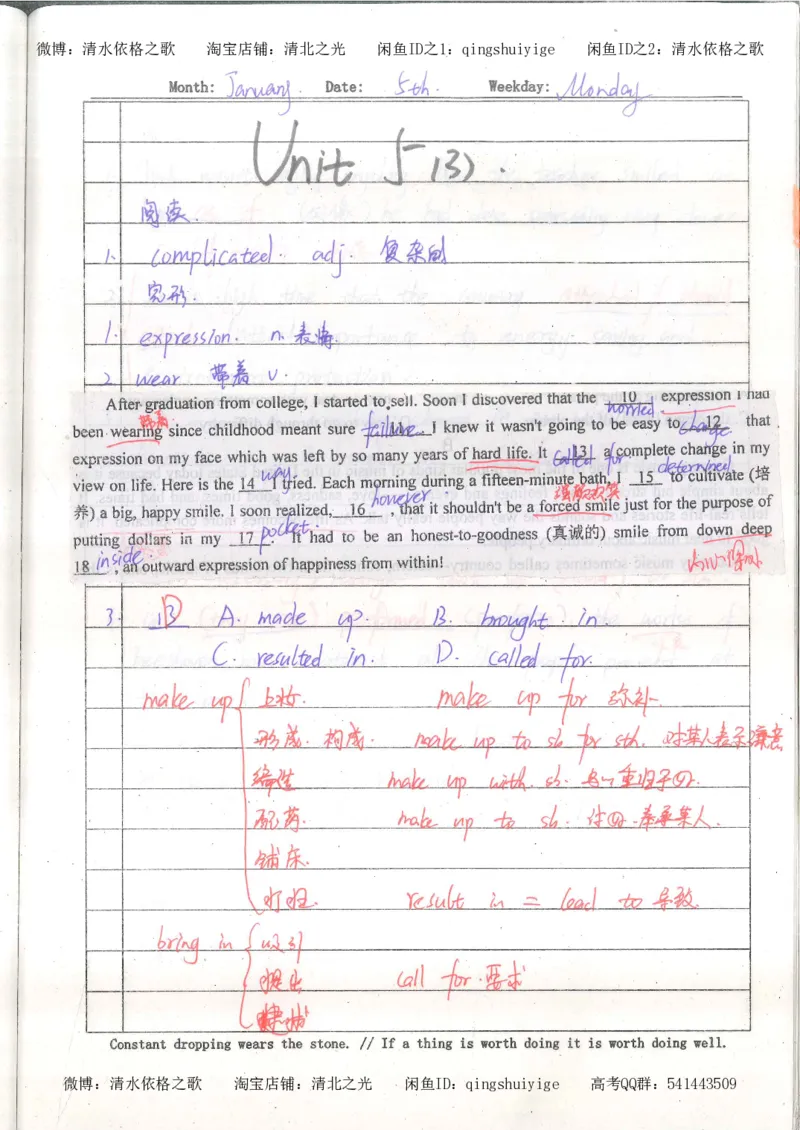 微博：清水依格之歌 淘宝店铺：清北之光 闲鱼ID之1：qingshuiyige 闲鱼ID之2：清水依格之歌
Month: January. Date: 5th. Weekday: Monday
Unit 5 (3).
阅读.
1. complicated. adj. 复杂的
完形.
1. expression. n. 表情.
2. wear 带着 v.
After graduation from college, I started to sell. Soon I discovered that the 10 expression I had
worried
带着
been wearing since childhood meant sure 11 I knew it wasn't going to be easy to 12 that
failure change
expression on my face which was left by so many years of hard life. It 13 a complete change in my
called for
view on life. Here is the 14 I tried. Each morning during a fifteen-minute bath, I 15 to cultivate (培
way determined
养) a big, happy smile. I soon realized, 16 , that it shouldn't be a forced smile just for the purpose of
however
putting dollars in my 17 . It had to be an honest-to-goodness (真诚的) smile from down deep
pocket
18 , an outward expression of happiness from within!
inside
3. 13 D A. made up. B. brought in.
C. resulted in. D. called for.
make up { 上妆. make up for 弥补.
形成. 构成. make up to sb for sth.
编造 make up with sb.
配药. make up to sb. 奉承某人.
铺床.
result in = lead to 导致.
bring in {
提出 call for 要求
Constant dropping wears the stone. // If a thing is worth doing it is worth doing well.
微博：清水依格之歌 淘宝店铺：清北之光 闲鱼ID：qingshuiyige 高考QQ群：541443509